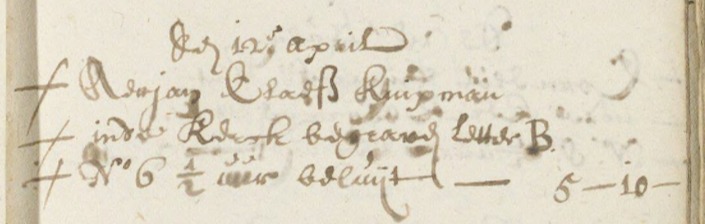 Den 12e april
Aerjan Claesz Knipman
inde Kerck begraven Letter B
No 6 1/2 uur beluijt — 5 — 10 —